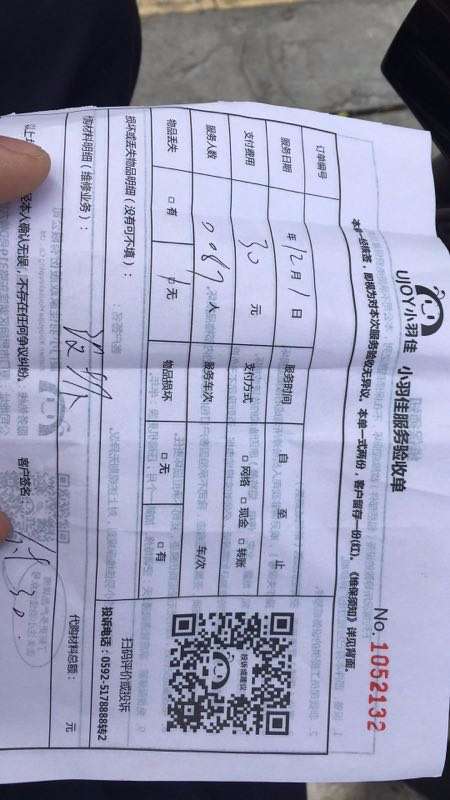 UJOY小羽佳 小羽佳服务验收单
No. 1052132
本单一经横签,即视为对本次服务验收无异议。本单一式两份,客户留存一份(红)。《维保须知》详见背面。
订单编号
服务日期 年 12 月 1 日 服务时间 自 至 止
支付费用 30 元 支付方式 □ 网络 □ 现金 □ 转账
服务人数 人 服务车次 车/次
物品丢失 □ 有 □ 无 物品损坏 □ 无 □ 有
损坏或丢失物品明细(没有可不填):
投诉或建议
扫码评价或投诉
投诉电话:0592-5178888转2
购材料明细(维修业务):
代购材料总额: 元
本人确认无误,不存在任何争议纠纷。 客户签名:
30.